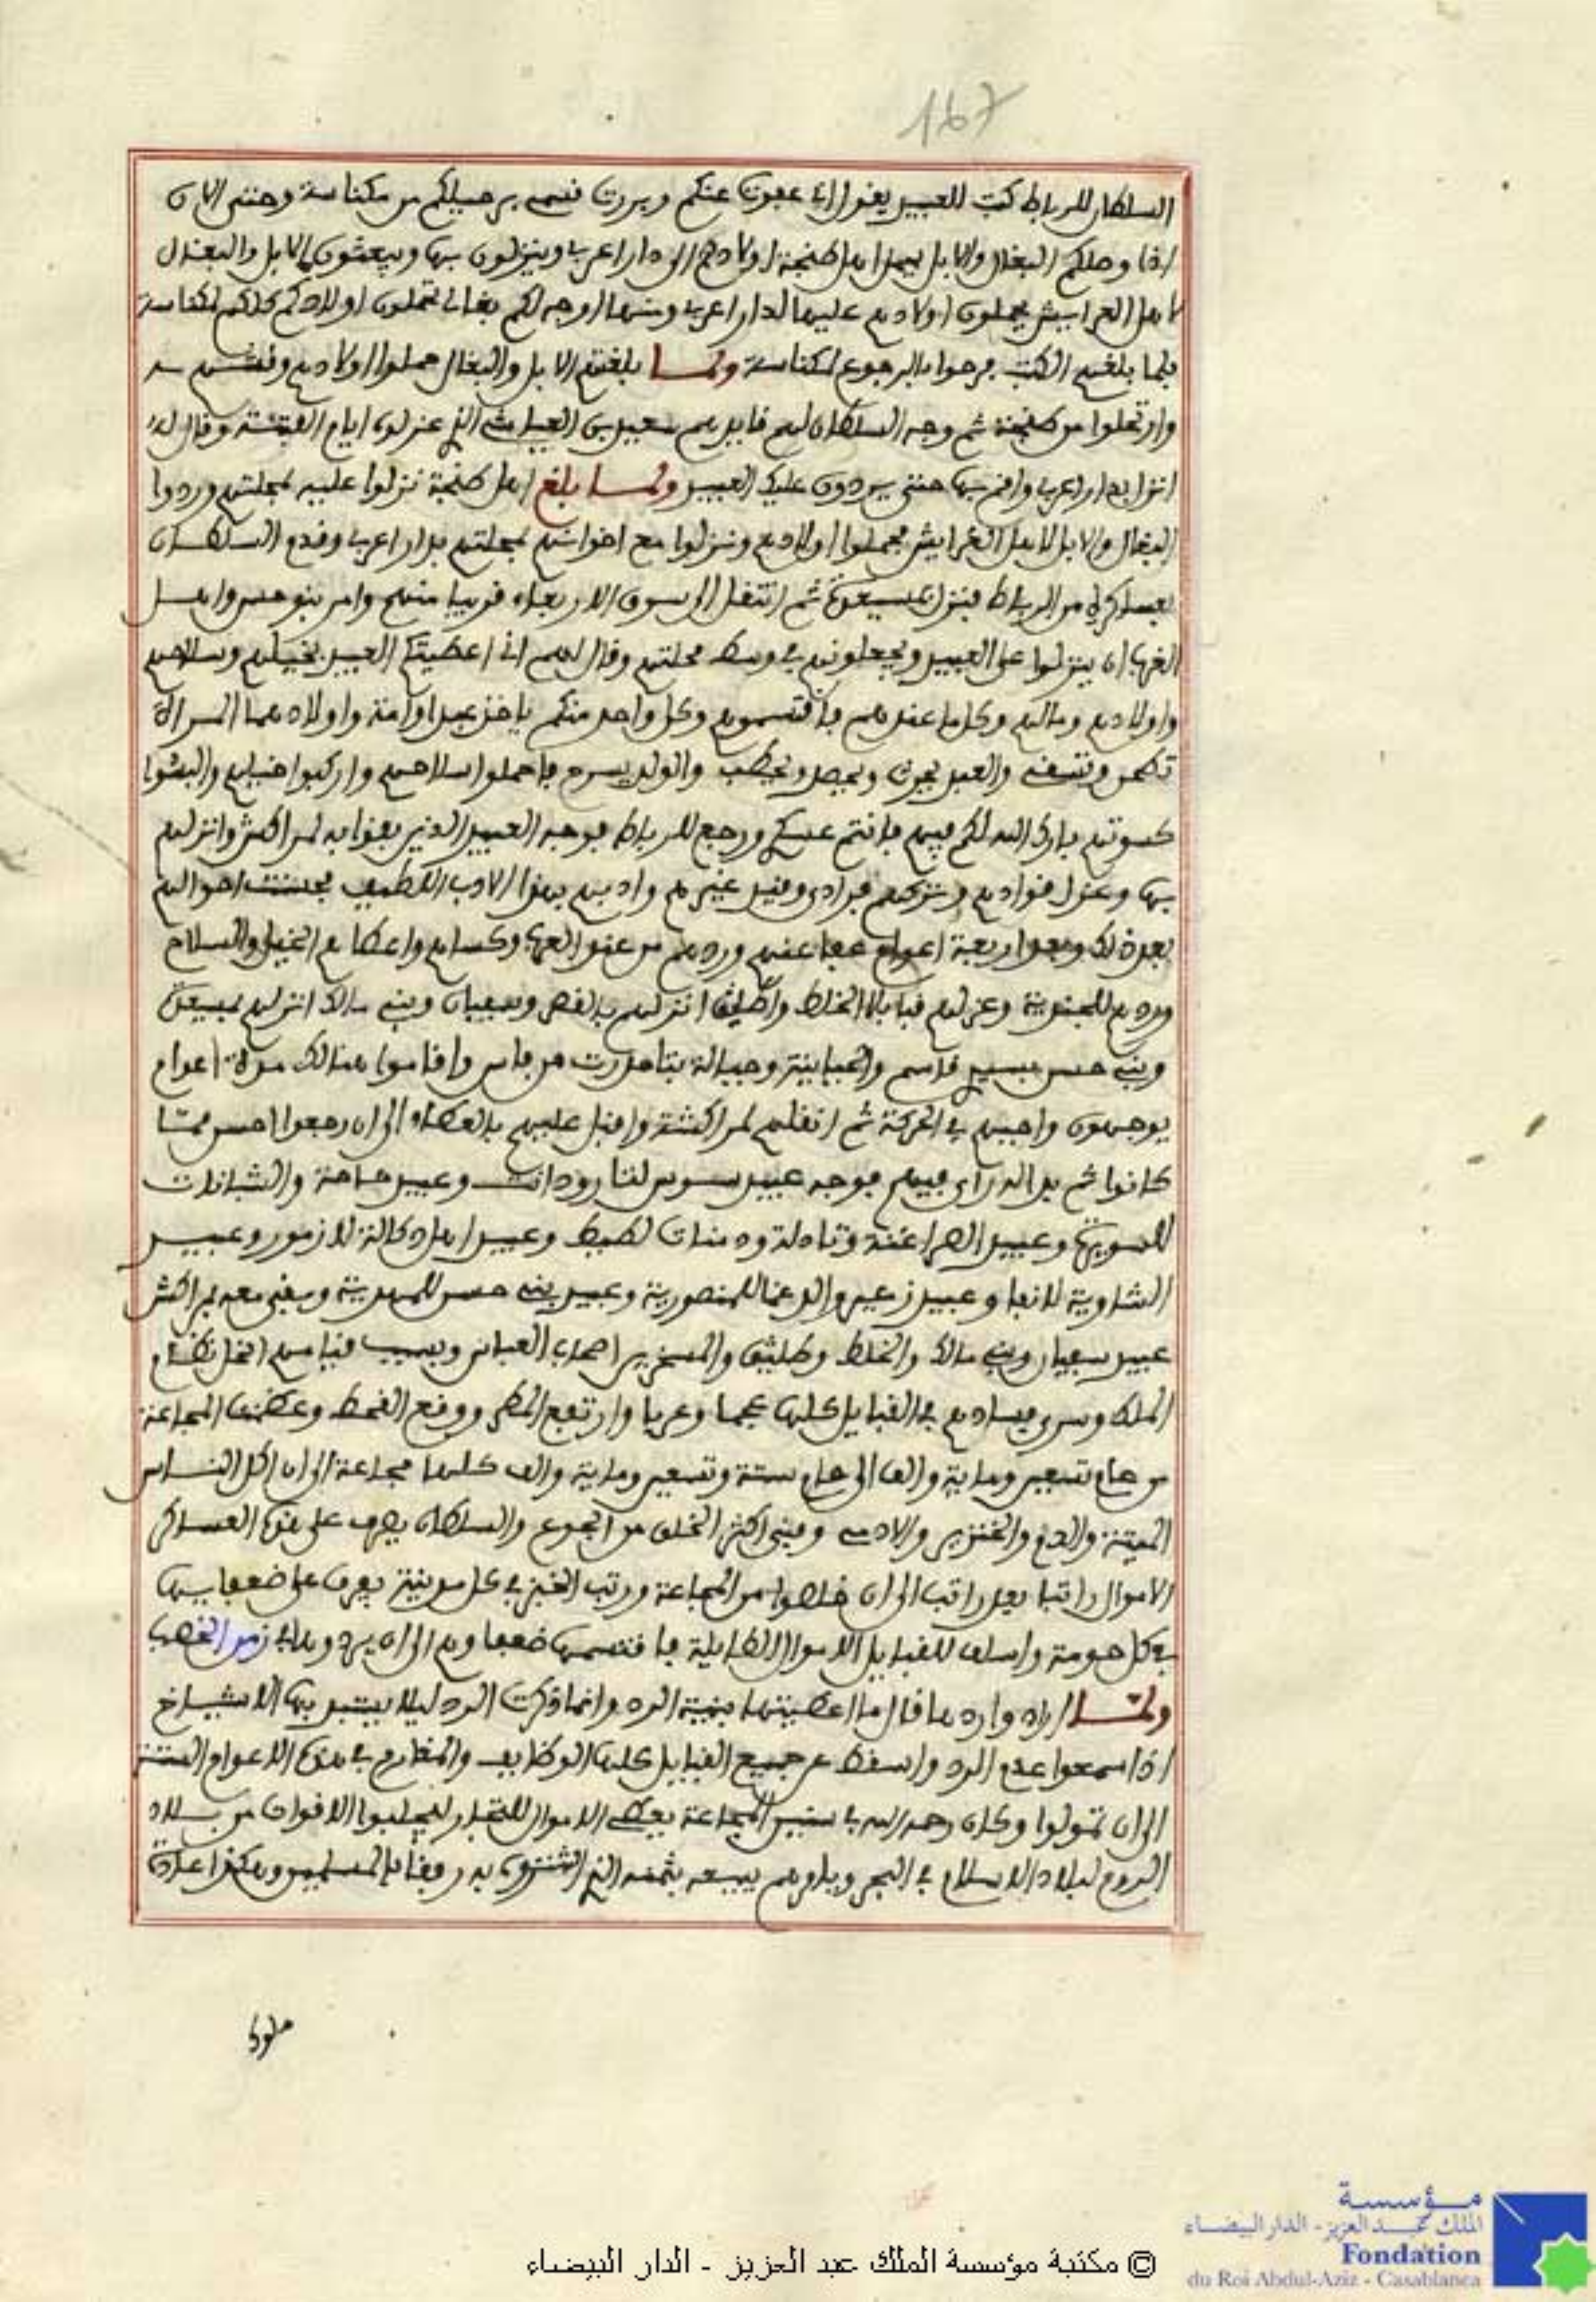 167
السلطان للرباط كتب للعبيد يقول اني عفوت عنكم وبررت قسمي برحيلكم من مكناسة وحتى الان
اذا وصلكم البغال والابل يحمل اهل طنجة اولادهم الى دار اعربي وينزلون بها ويبعثون الابل والبغال
لاهل العرايش يحملون اولادهم عليها لدار اعربي ومنها اوجه لكم بغالي تحملون اولادكم كلكم لمكناسة
فلما بلغهم الكتب فرحوا بالرجوع لمكناسة ولما بلغتهم الابل والبغال حملوا اولادهم وقشهم
وارتحلوا من طنجة ثم وجه السلطان لهم قايدهم سعيد بن العياشي الذي عزلوه ايام الفتنة وقال له
انزل بدار اعربي واقم بها حتى يردون عليك العبيد ولما بلغ اهل طنجة نزلوا عليه بمحلتهم وردوا
البغال والابل لاهل العرايش فحملوا اولادهم ونزلوا مع اخوانهم بمحلتهم بدار اعربي وقدم السلطان
بعساكره من الرباط فنزل بمسيعدة ثم انتقل الى سوق الاربعاء قريبا منهم وامر بنو حسن واهل
الغرب ان ينزلوا على العبيد ويجعلونهم في وسط محلتهم وقال لهم اني اعطيتكم العبيد بخيلهم وسلاحهم
واولادهم ومالهم وكل ما عندهم فاقتسموهم وكل واحد منكم ياخذ عبدا وامة واولادهما المراة
تطحن وتسقى والعبد يحرث ويحصد ويحطب والولد يسرح فاحملوا سلاحهم واركبوا خيلهم والبسوا
كسوتهم بارك الله لكم فيهم فانتم عسكري ورجع للرباط فوجه العبيد الذين بقوا به لمراكش وانزلهم
بها وعزل قوادهم وتركهم فرادى وقيد غيرهم وادبهم بهذا الادب اللطيف فحسنت احوالهم
بعد ذلك وبعد اربعة اعوام عفا عنهم وردهم من عند العرب وكساهم واعطاهم الخيل والسلاح
وردهم للجندية وعزلهم قبايل الخلط واطليق انزلهم بالقصر وسفيان وبني مالك انزلهم بمسيعدة
وبني حسن بسيدي قاسم والحياينة وجبالة بتامدرت من فاس واقاموا هنالك مدة اعوام
يوجهون واجبهم في الحركة ثم انقلهم لمراكشة واقبل عليهم بالعطاء الى ان رجعوا احسن مما
كانوا ثم بدا له راي فيهم فوجه عبيد سوس لتارودانت وعبيد حاحة والشبانات
للسويرة وعبيد السراغنة وتادلة ودمنات لطيط وعبيد اهل دكالة لازمور وعبيد
الشاوية لانفا وعبيد زعير والدغما للمنصورية وعبيد بني حسن للمهدية وبقي معه بمراكش
عبيد سفيان وبني مالك والخلط وطليق والمسخرين اصحاب العباس وبسبب قيامهم انخل نظام
الملك وسرى فسادهم في القبايل كلها عجما وعربا وارتفع المطر ووقع القحط وعظمت المجاعة
من عام تسعين وماية والف الى عام ستة وتسعين وماية والف كلها مجاعة الى ان اكل الناس
الميتة والدم والخنزير والادمي وفنى اكثر الخلق من الجوع والسلطان يصرف على هذه العساكر
الاموال راتبا بعد راتب الى ان خلصوا من المجاعة ورتب الخبز في كل مدينة يفرق على ضعفايها
في كل حومة واسلف للقبايل الاموال الطايلة فاقتسمها ضعفاوهم الى ان يردوها في زمن الخصب
ولما اراد واردها قال ما اعطيتها بنية الرد وانما ذكرت الرد ليلا يستبد بها الاشياخ
اذا سمعوا عدم الرد واسقط عن جميع القبايل كلها الوظايف والمغارم في هذه الاعوام الستة
الى ان تمولوا وكان رحمه الله في سنين المجاعة يعطي الاموال للتجار ليجلبوا الاقوات من بلاد
الروم لبلاد الاسلام في البحر ويامرهم ببيعه بثمنه الذي اشتروه به رفقا بالمسلمين وهكذا عادة
ملوك
© مكتبة مؤسسة الملك عبد العزيز - الدار البيضاء
مؤسسة
الملك عبد العزيز - الدار البيضاء
Fondation
du Roi Abdul-Aziz - Casablanca